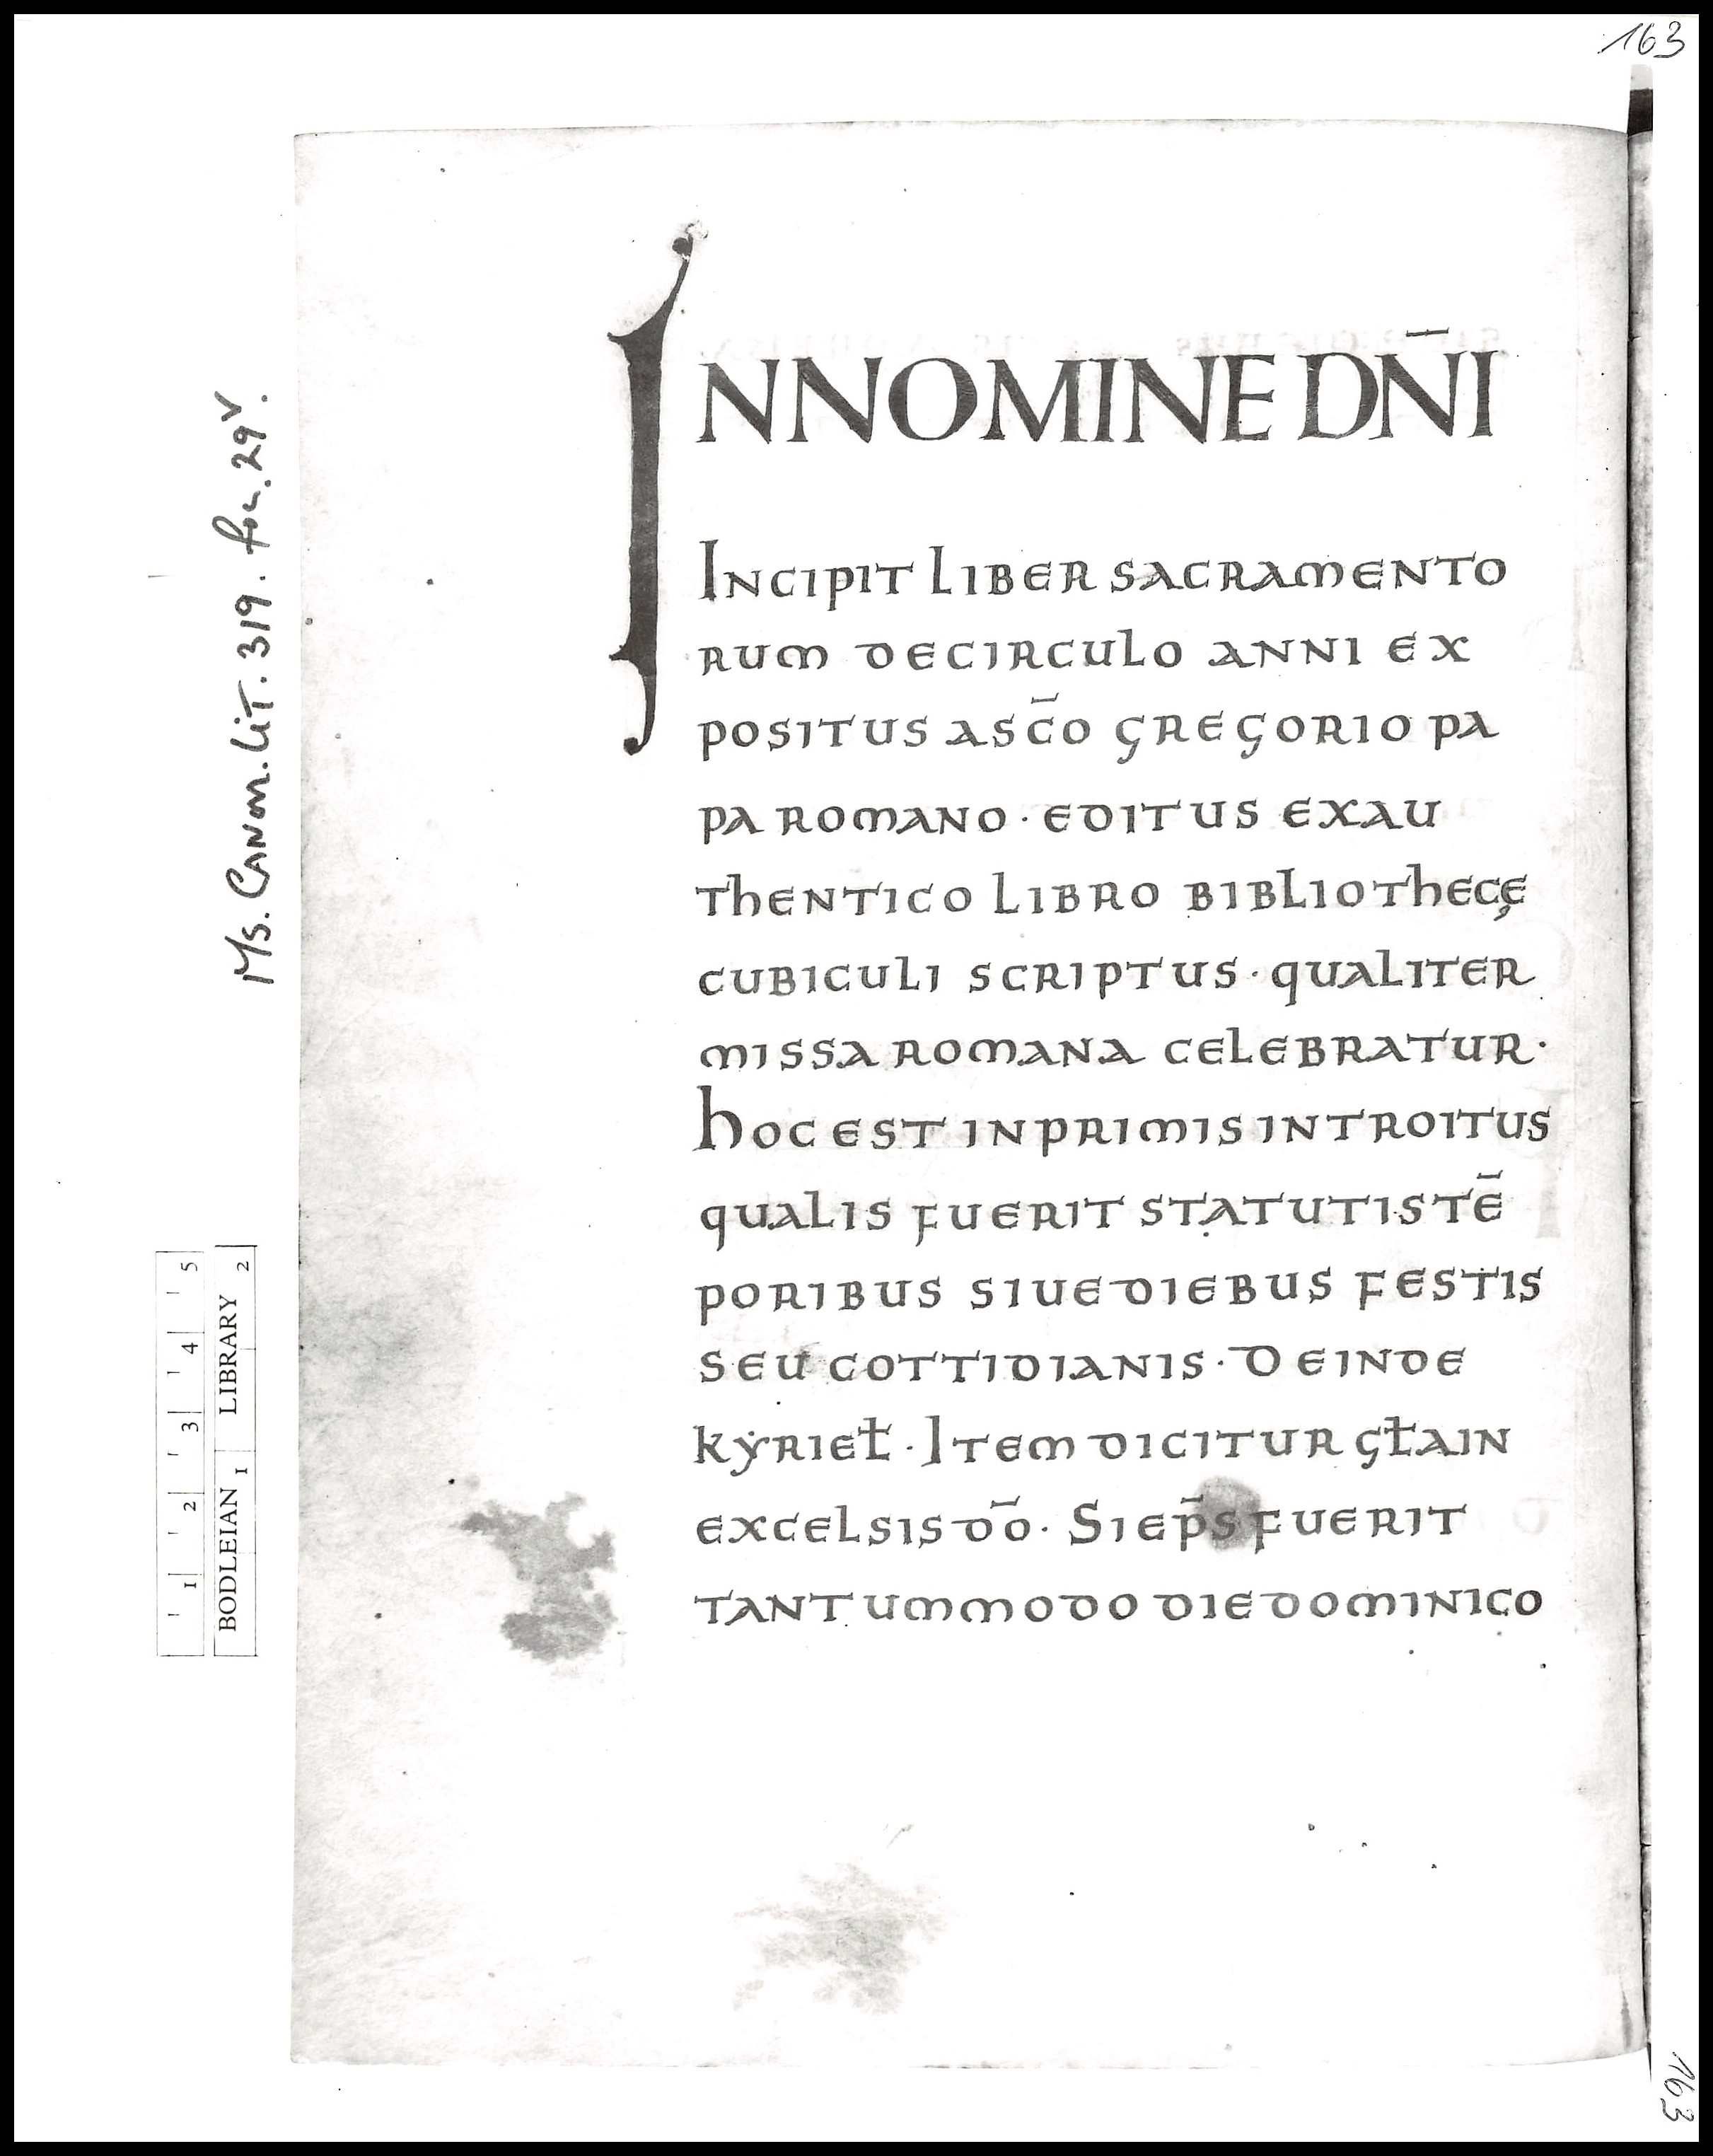 163
INNOMINE DN̄I
INCIPIT LIBER SACRAMENTO
RUM DECIRCULO ANNI EX
POSITUS ASC̄O GREGORIO PA
PA ROMANO · EDITUS EXAU
THENTICO LIBRO BIBLIOTHECĘ
CUBICULI SCRIPTUS · QUALITER
MISSA ROMANA CELEBRATUR ·
HOC EST INPRIMIS INTROITUS
QUALIS FUERIT STATUTIS TĒ
PORIBUS SIUE DIEBUS FESTIS
SEU COTTIDIANIS · DEINDE
KẎRIEŁ · ITEM DICITUR GŁA IN
EXCELSIS DŌ · SI EP̄S FUERIT
TANTUMMODO DIE DOMINICO
Ms. CANON. LIT. 319. fol. 29v.
1 2 3 4 5
BODLEIAN 1 LIBRARY 2
163